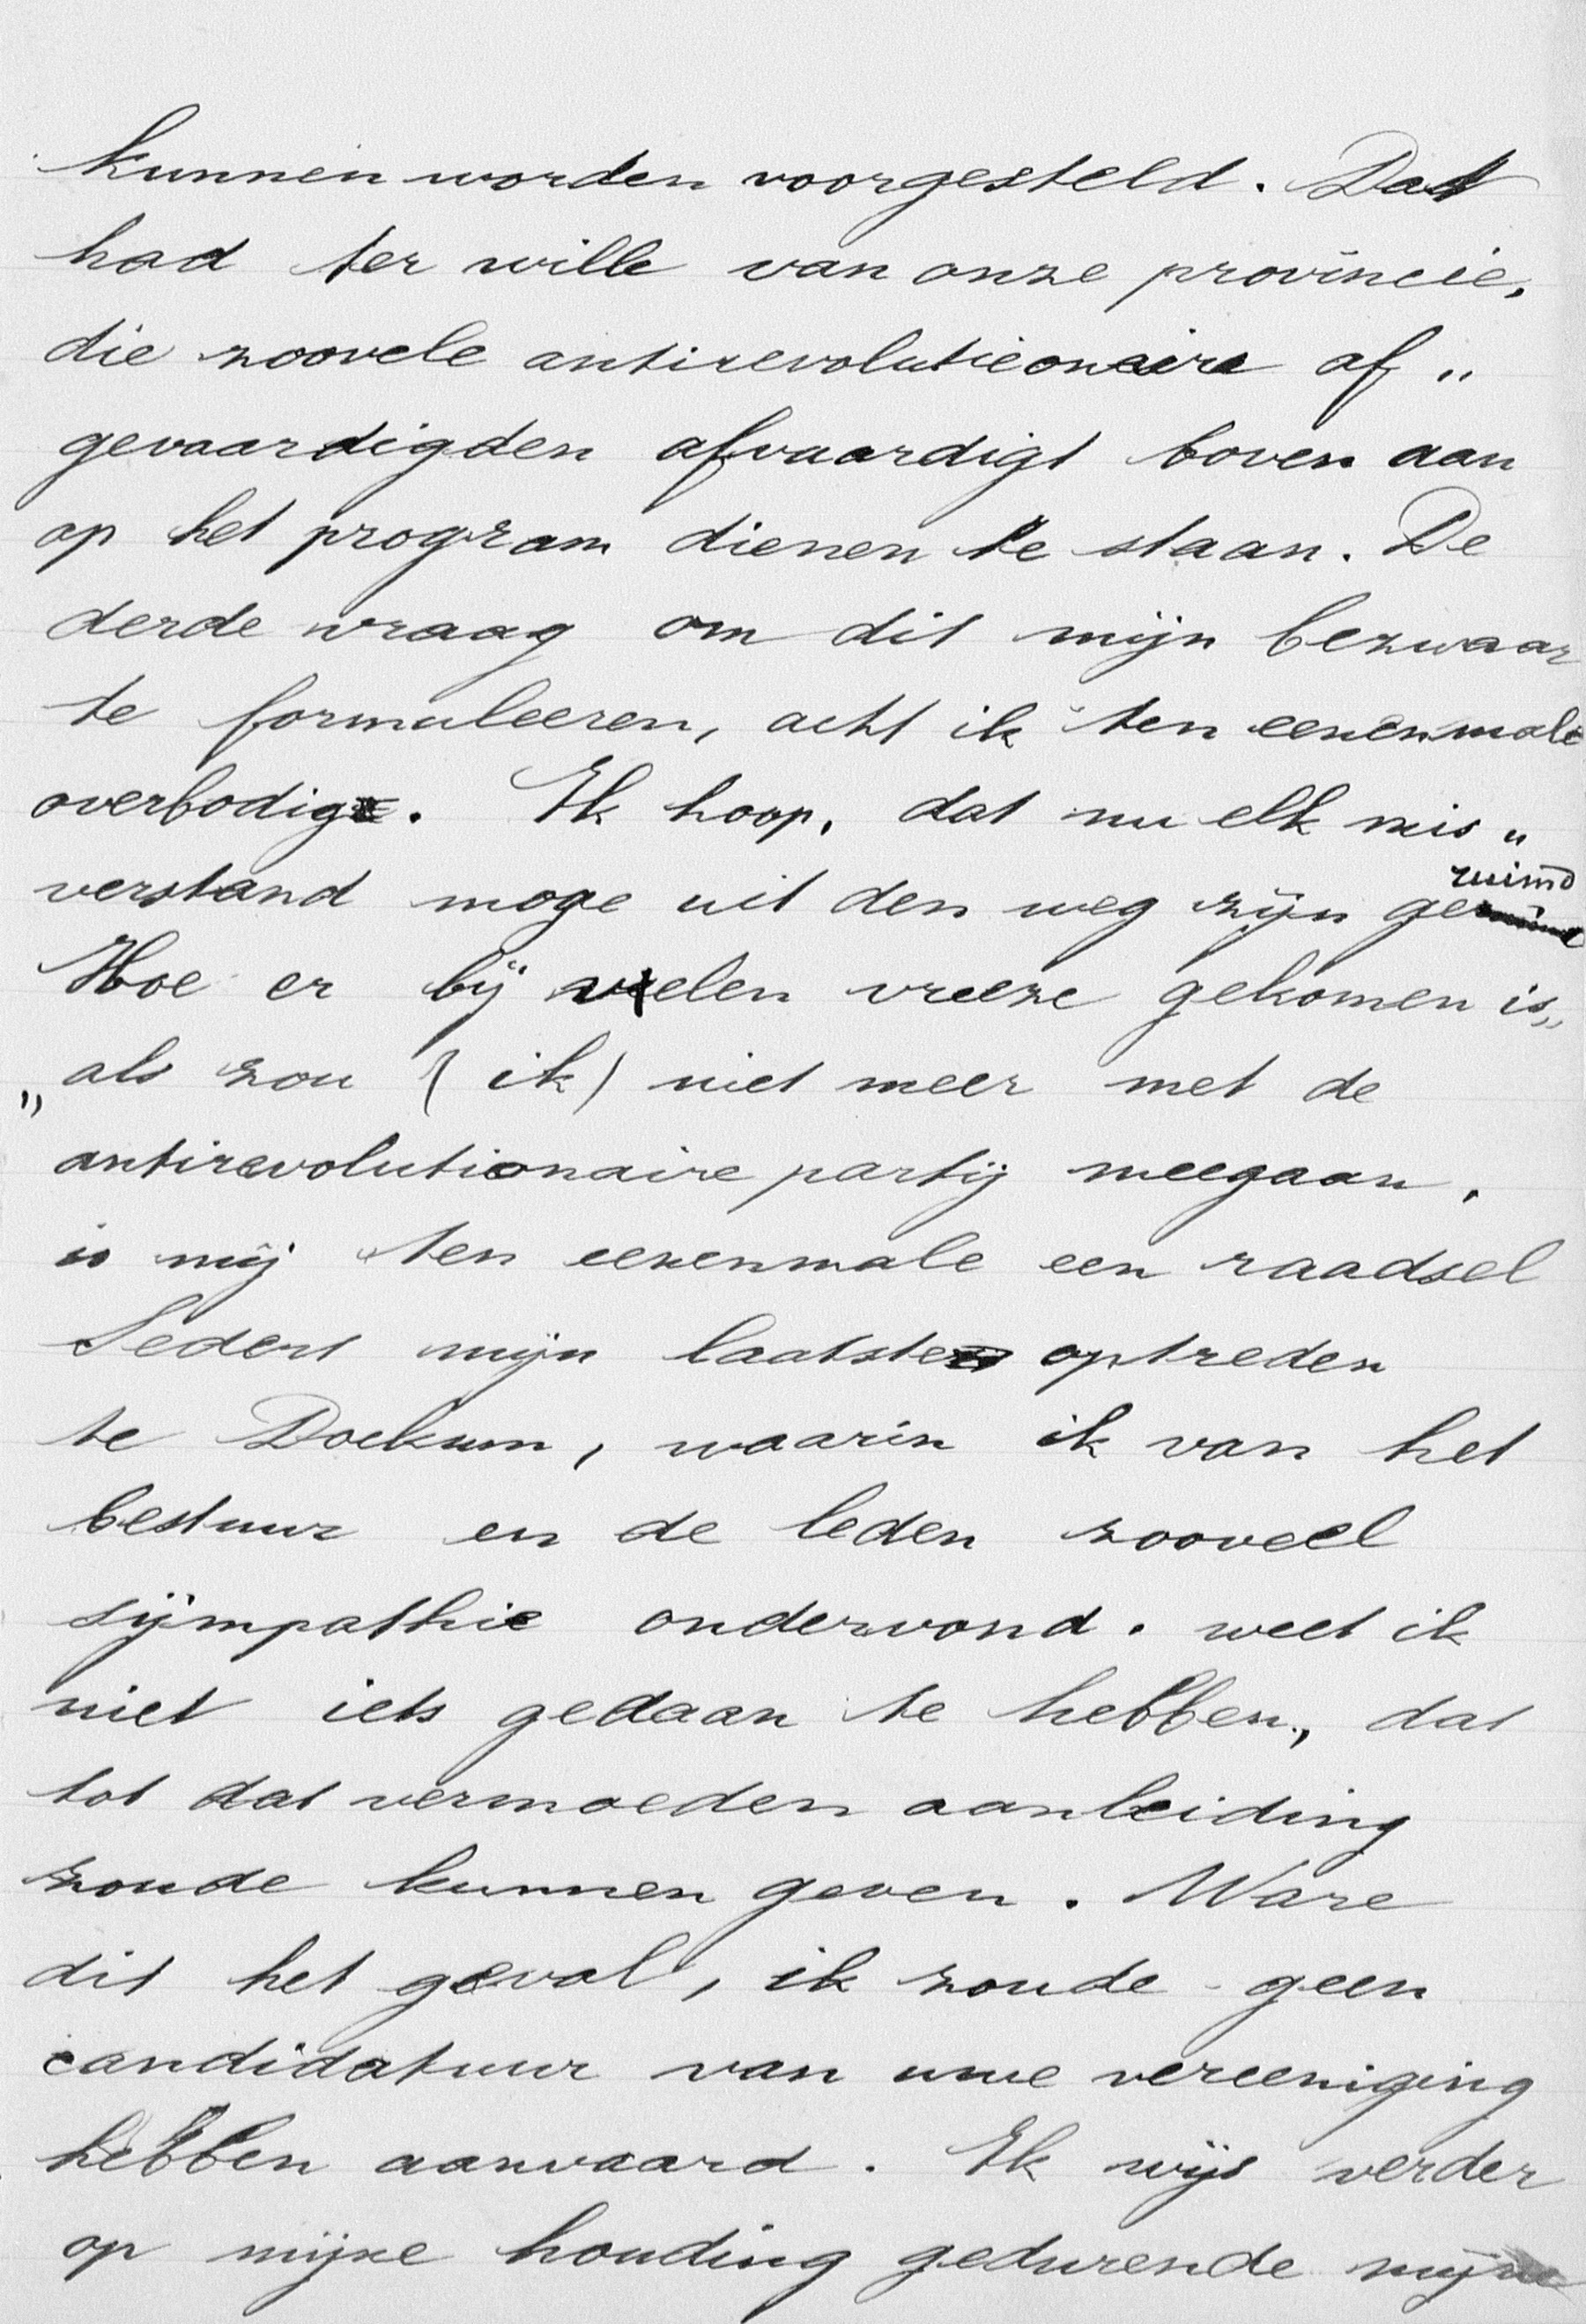 kunnen worden voorgesteld. Dat
had ter wille van onze provincie,
die zoovele antirevolutieonaire af„
gevaardigden afvaardigt boven aan
op het program dienen te staan. De
derde vraag om dit mijn bezwaar
te formuleeren, acht ik ten eenenmale
overbodig. Ik hoop, dat nu elk mis„
verstand moge uit den weg zijn geruimd
Hoe er bij velen vreeze gekomen is„
„als zou (ik) niet meer met de
antirevolutionaire partij meegaan,
is mij ten eenenmale een raadsel
Sedert mijn laatste optreden
te Dockum, waarin ik van het
bestuur en de leden zooveel
sympathie ondervond. weet ik
niet iets gedaan te hebben, dat
tot dat vermoeden aanleiding
zoude kunnen geven. Ware
dit het geval, ik zoude geen
candidatuur van uwe vereeniging
hebben aanvaard. Ik wijs verder
op mijne houding gedurende mijne